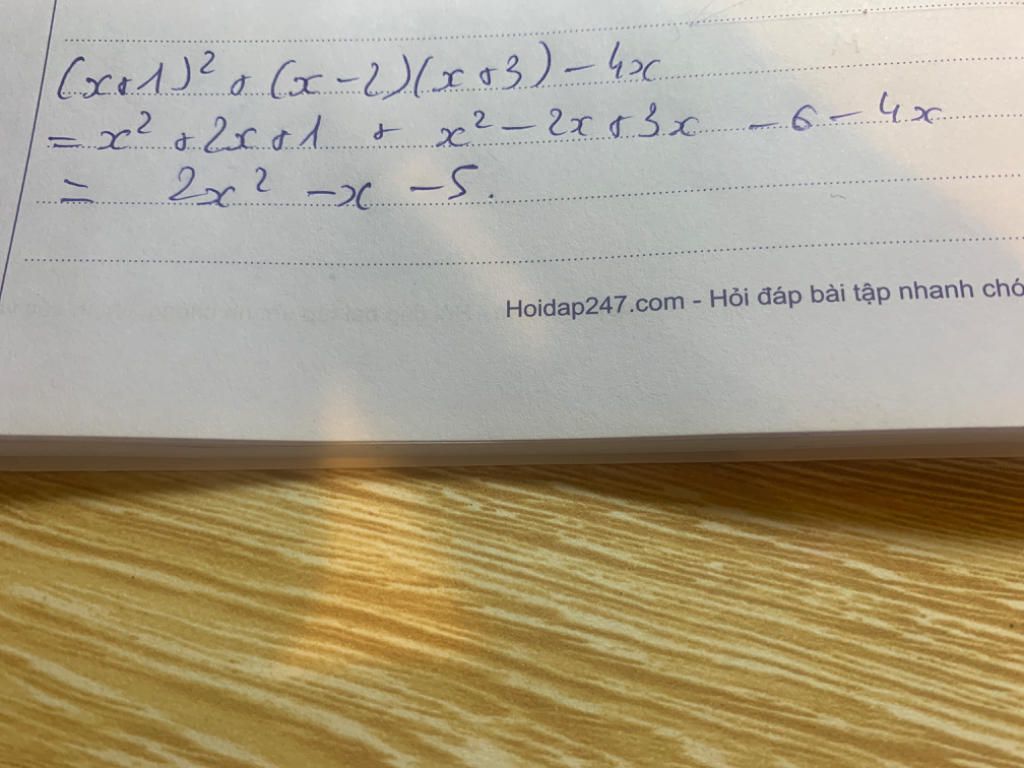 (x+1)² + (x-2)(x+3) - 4x
= x² + 2x + 1 + x² - 2x + 3x - 6 - 4x
= 2x² - x - 5.
Hoidap247.com - Hỏi đáp bài tập nhanh chó